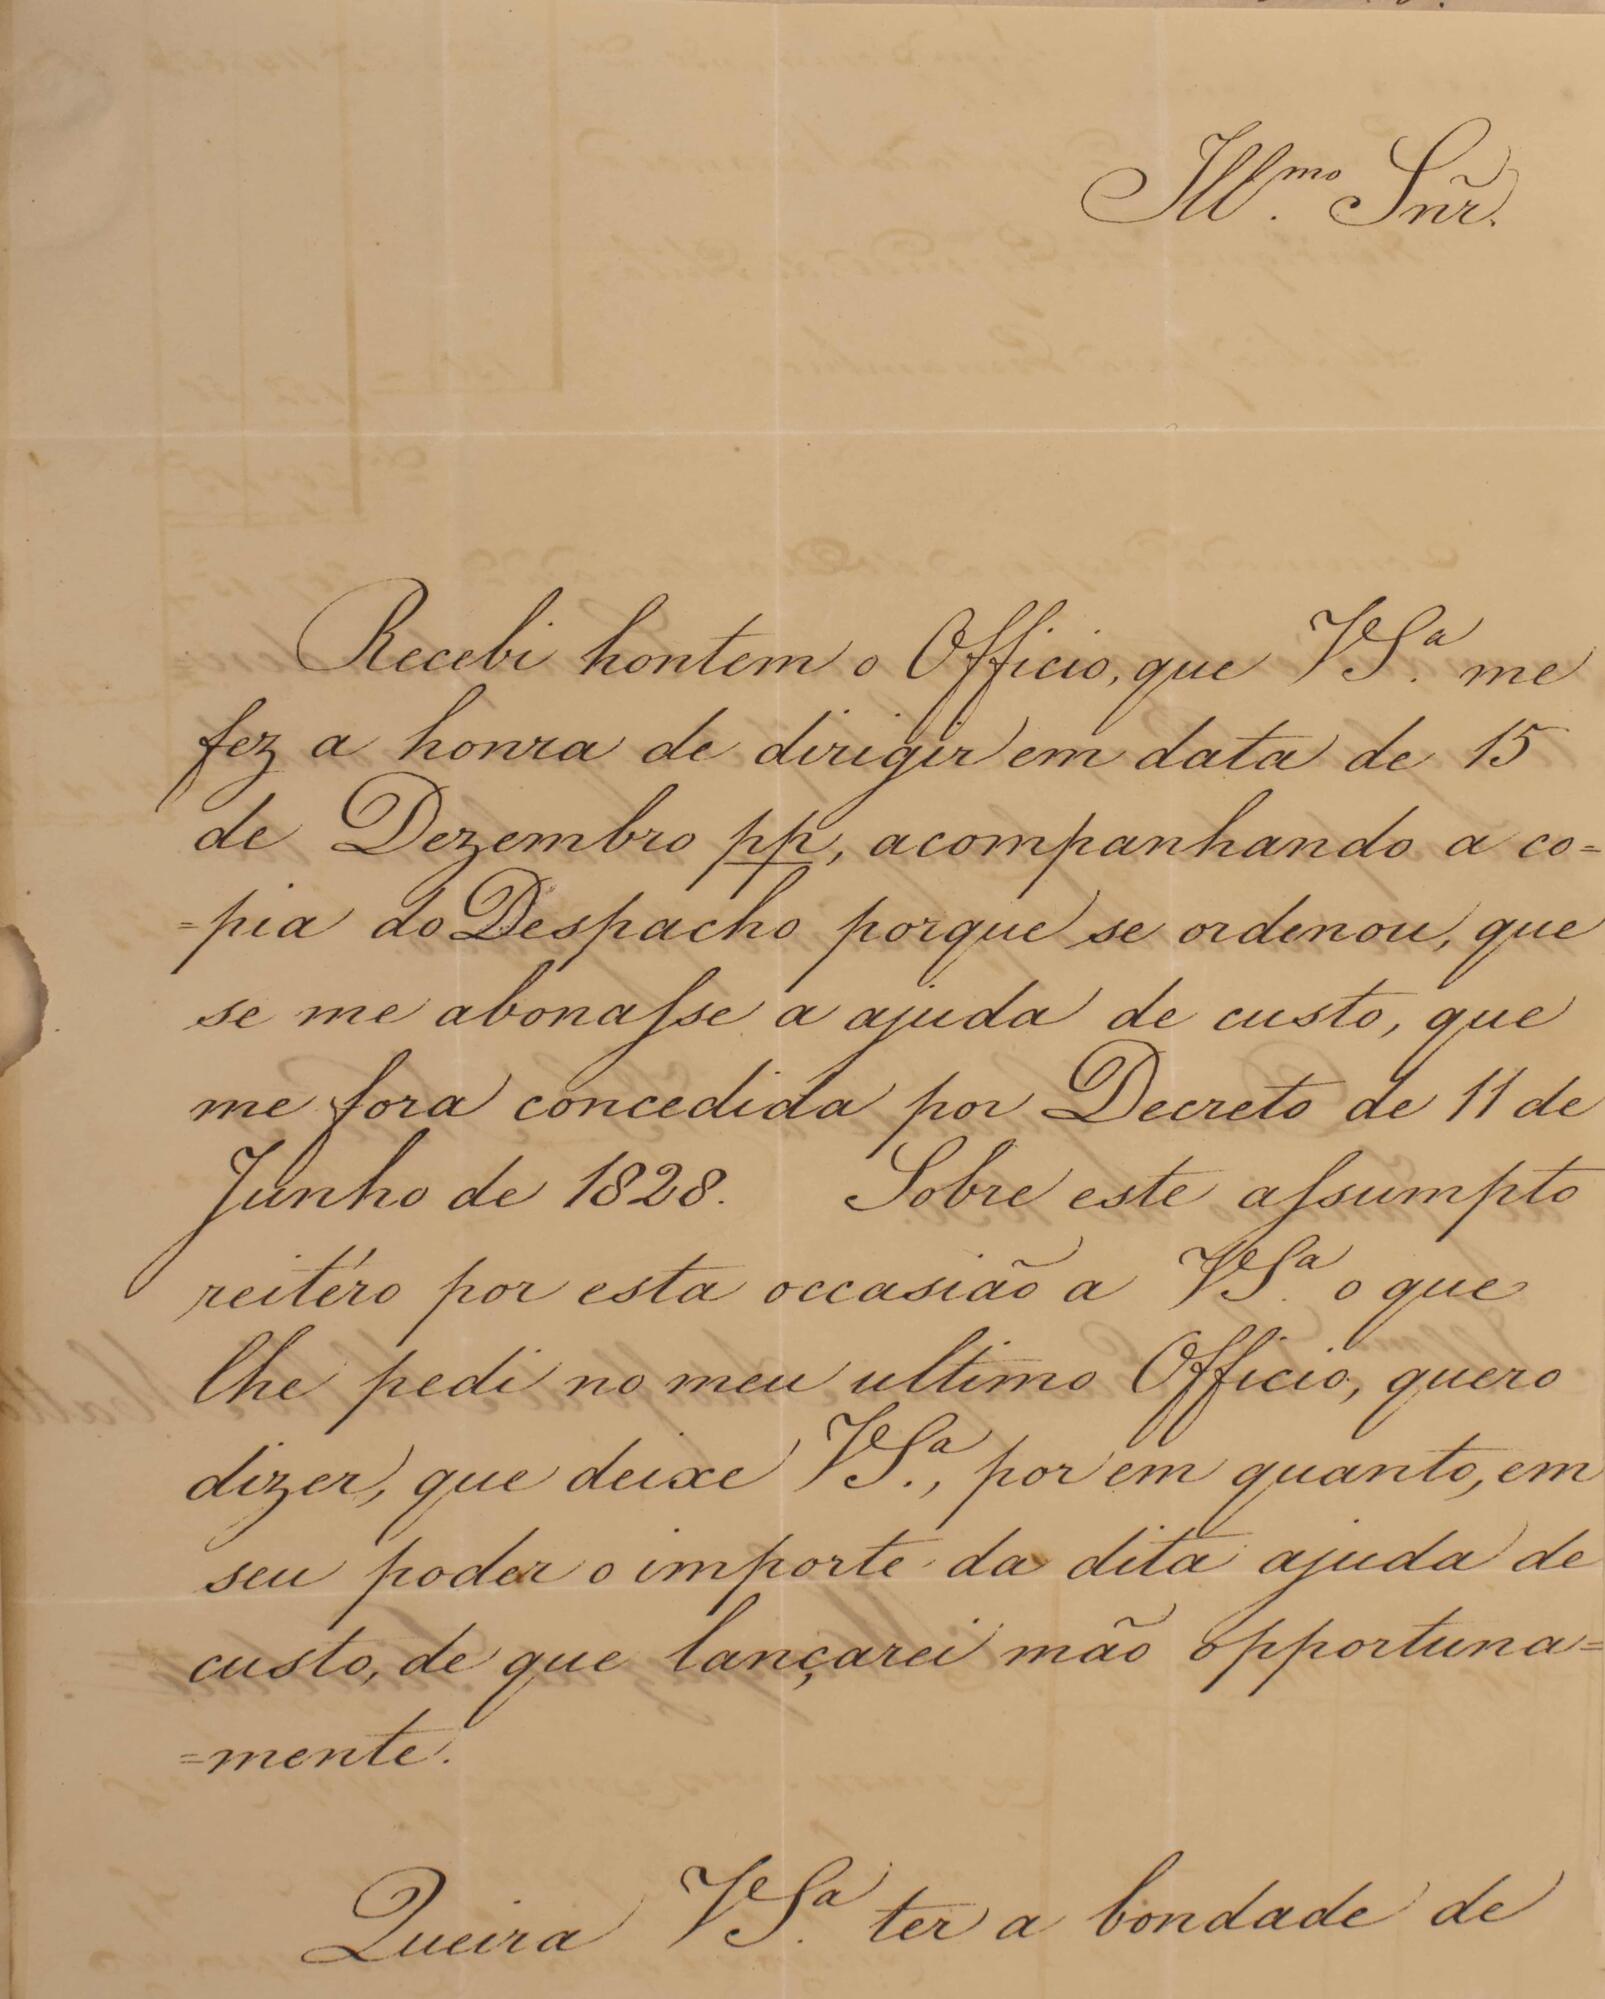 Ill.mo Snr̃.
Recebi hontem o Officio, que VS.a me
fez a honra de dirigir em data de 15
de Dezembro pp, acompanhando a co=
=pia do Despacho porque se ordenou, que
se me abonaſse a ajuda de custo, que
me fora concedida por Decreto de 11 de
Junho de 1828. Sobre este aſsumpto
reitéro por esta occasião a VS.a o que
lhe pedi no meu ultimo Officio, quero
dizer, que deixe VS.a, por em quanto, em
seu poder o importe da dita ajuda de
custo, de que lançarei mão opportuna=
=mente.
Queira VS.a ter a bondade de